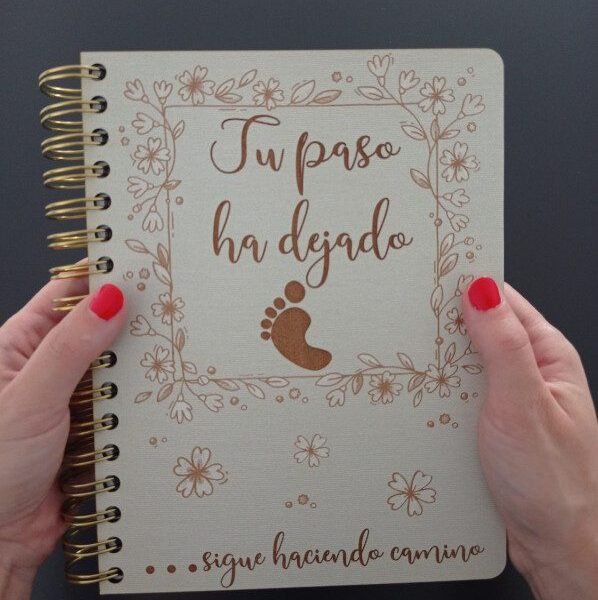 Tu paso
ha dejado
...sigue haciendo camino